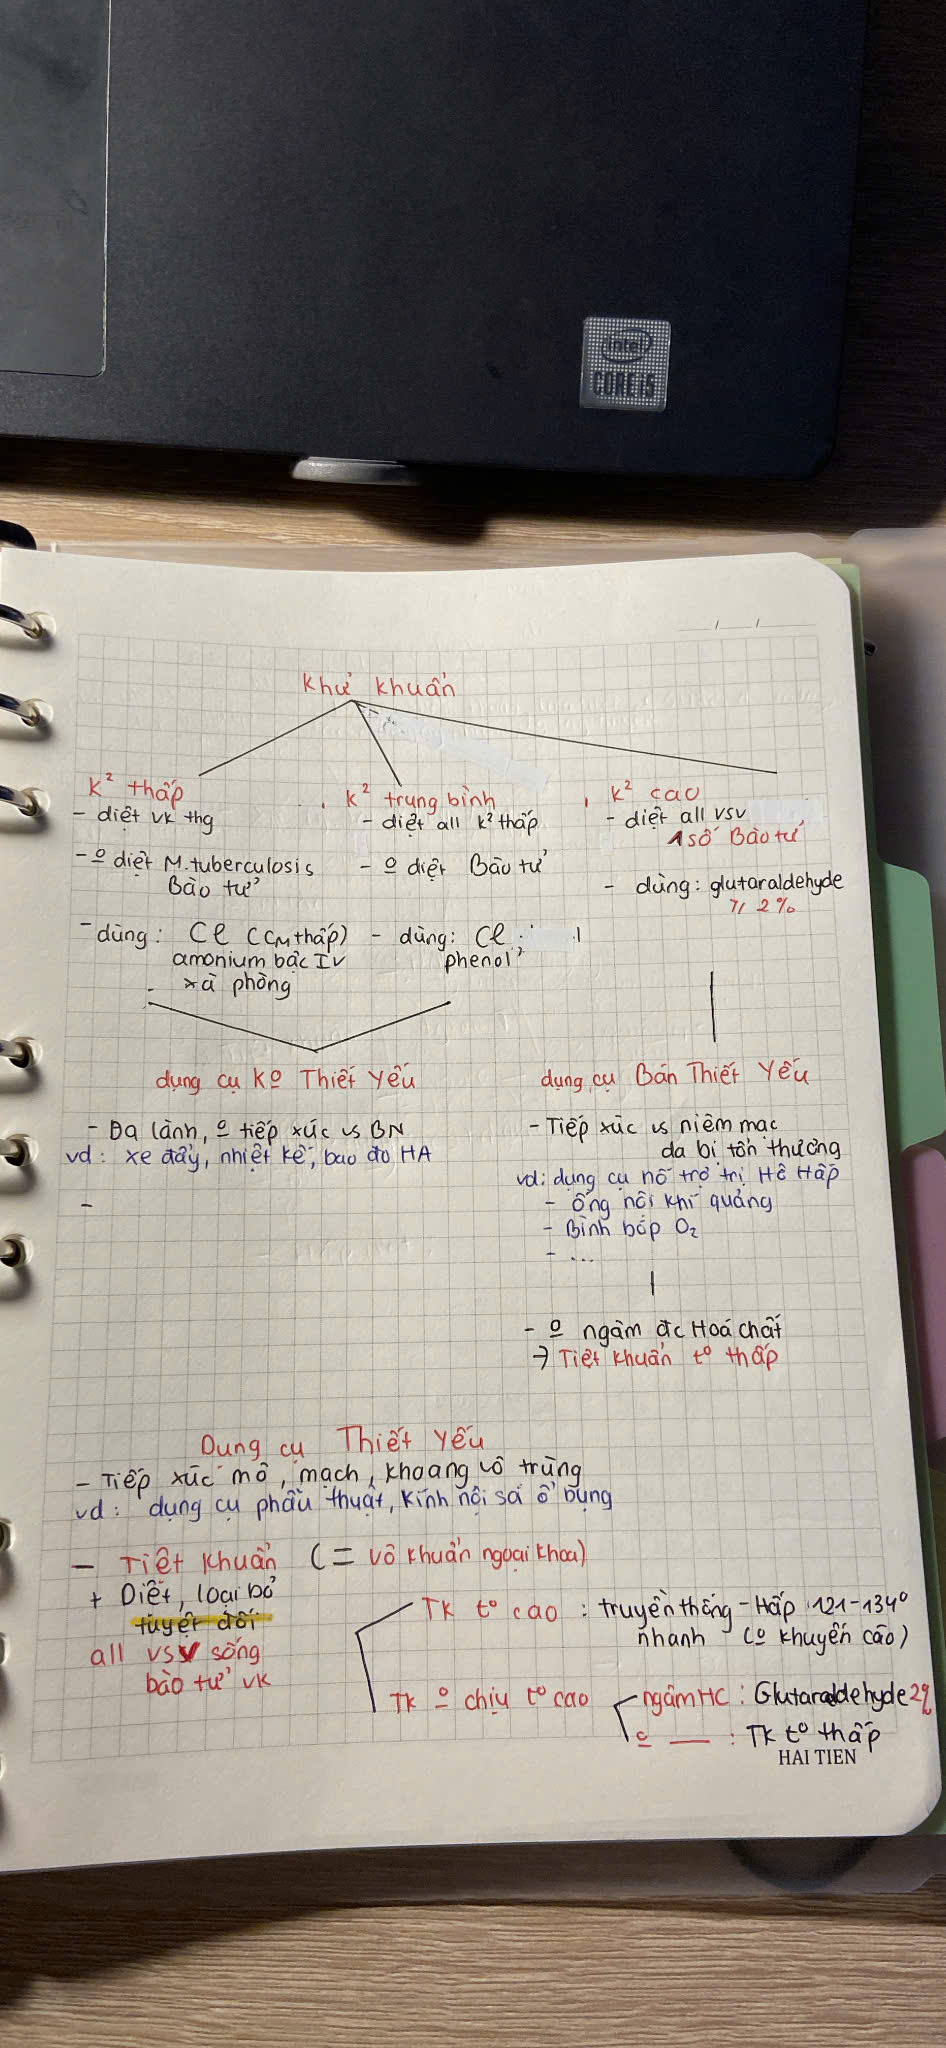 intel
CORE i5
Khử khuẩn
K² thấp
- diệt vk thg
- o diệt M. tuberculosis
Bào tử
- dùng: Cl (CM thấp)
amonium bậc IV
xà phòng
K² trung bình
- diệt all k² thấp
- o diệt Bào tử
- dùng: Cl
phenol
K² cao
- diệt all vsv
1 số Bào tử
- dùng: glutaraldehyde
≥ 2%
dụng cụ Ko Thiết Yếu
- Da lành, o tiếp xúc vs BN
vd: xe đẩy, nhiệt kế, bao đo HA
-
dụng cụ Bán Thiết Yếu
- Tiếp xúc vs niêm mạc
da bị tổn thương
vd: dụng cụ hỗ trợ trị Hô Hấp
- ống nội khí quảng
- Bình bóp O₂
- ...
- o ngâm đc Hoá chất
→ Tiệt khuẩn tº thấp
Dụng cụ Thiết Yếu
- Tiếp xúc mô, mạch, khoang vô trùng
vd: dụng cụ phẫu thuật, kính nội soi ổ bụng
- Tiệt khuẩn (= vô khuẩn ngoại khoa)
+ Diệt, loại bỏ
tuyệt đối
all vsv sống
bào tử vk
TK tº cao : truyền thống - Hấp 121-134º
nhanh (o khuyến cáo)
TK o chịu tº cao
ngâm HC : Glutaraldehyde 2%
o — : TK tº thấp
HAI TIEN